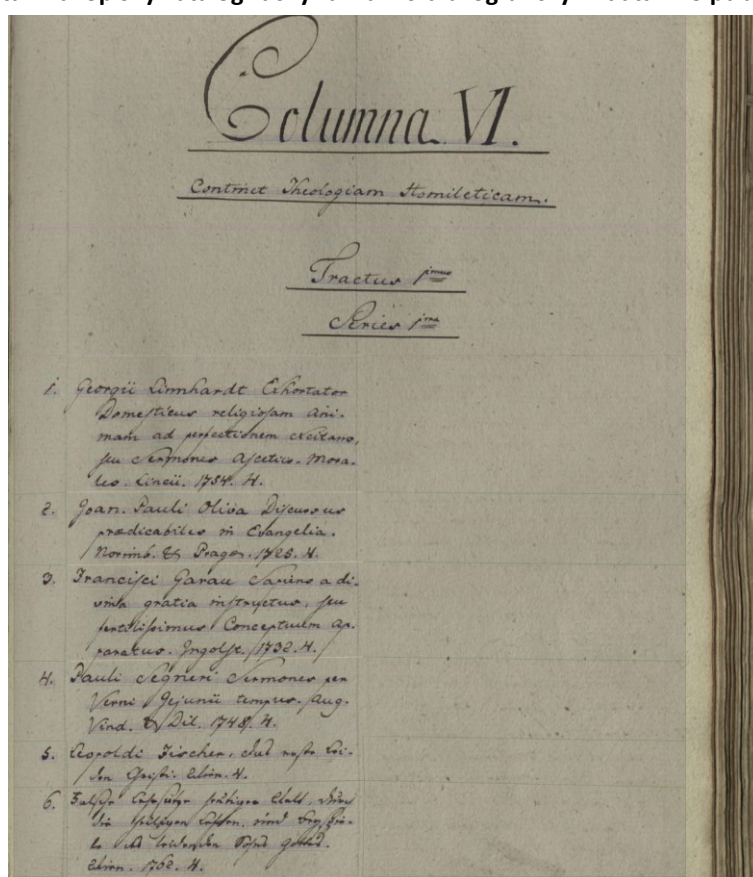 Columna VI.
Continet Theologiam Homileticam.
Tractus 1mus
Series 1ma
1. Georgii Linnhardt Exhortator
Domesticus religiosam ani-
mam ad perfectionem excitans,
seu Sermones Ascetico-Mora-
les. Lincii. 1754. 4.
2. Joan. Pauli Oliva Discursus
prædicabiles in Evangelia.
Norimb. & Pragæ. 1725. 4.
3. Francisci Garau Sapiens a di-
vina gratia instructus, seu
fertilissimus Conceptuum Ap-
paratus. Ingolst. 1732. 4.
4. Pauli Segneri Sermones per
Verni Jejunii tempus. Aug.
Vind. & Dil. 1748. 4.
5. Leopoldi Fischer, das Lei-
den Christi. Wien. 4.
6. die heiligen
Wien. 1762. 4.